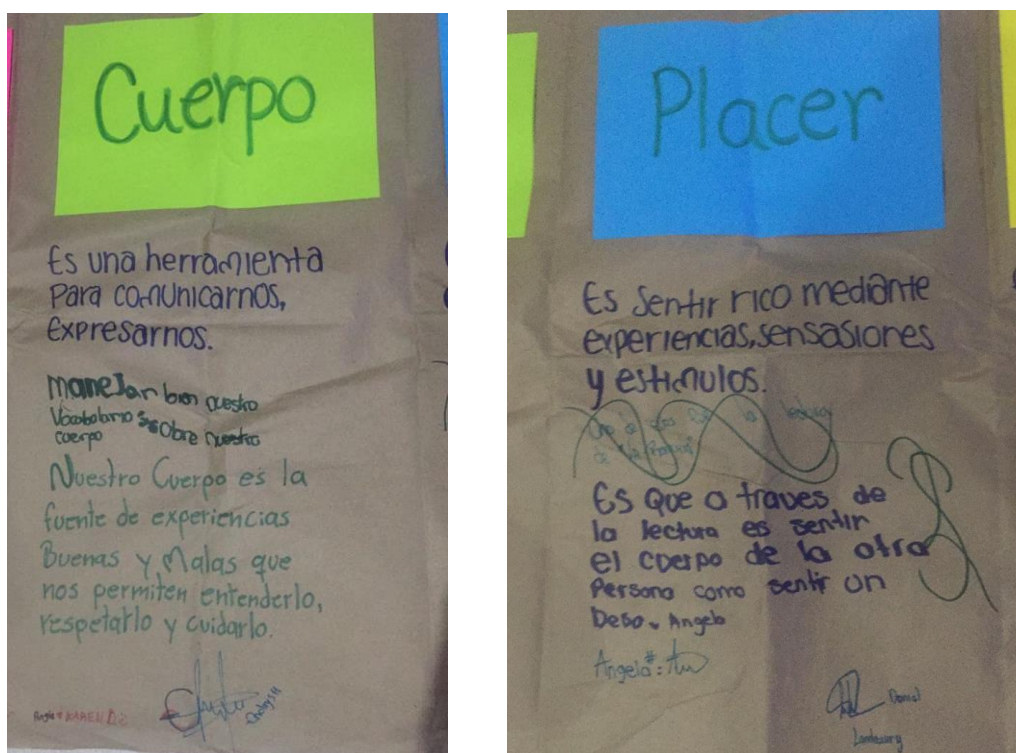 Cuerpo
Es una herramienta
Para comunicarnos,
Expresarnos.
maneJar bien nuestro
Vocabolario sobre nuestro
cuerpo
Nuestro Cuerpo es la
fuente de experiencias
Buenas y Malas que
nos permiten entenderlo,
respetarlo y cuidarlo.
KAREN DZ
Placer
Es Sentir rico mediante
experiencias, sensasiones
y estimulos.
la lectura
de
Es Que a traves de
la lectura es sentir
el cuerpo de la otra
Persona como sentir un
Deso. Angela
Angela#:
Daniel